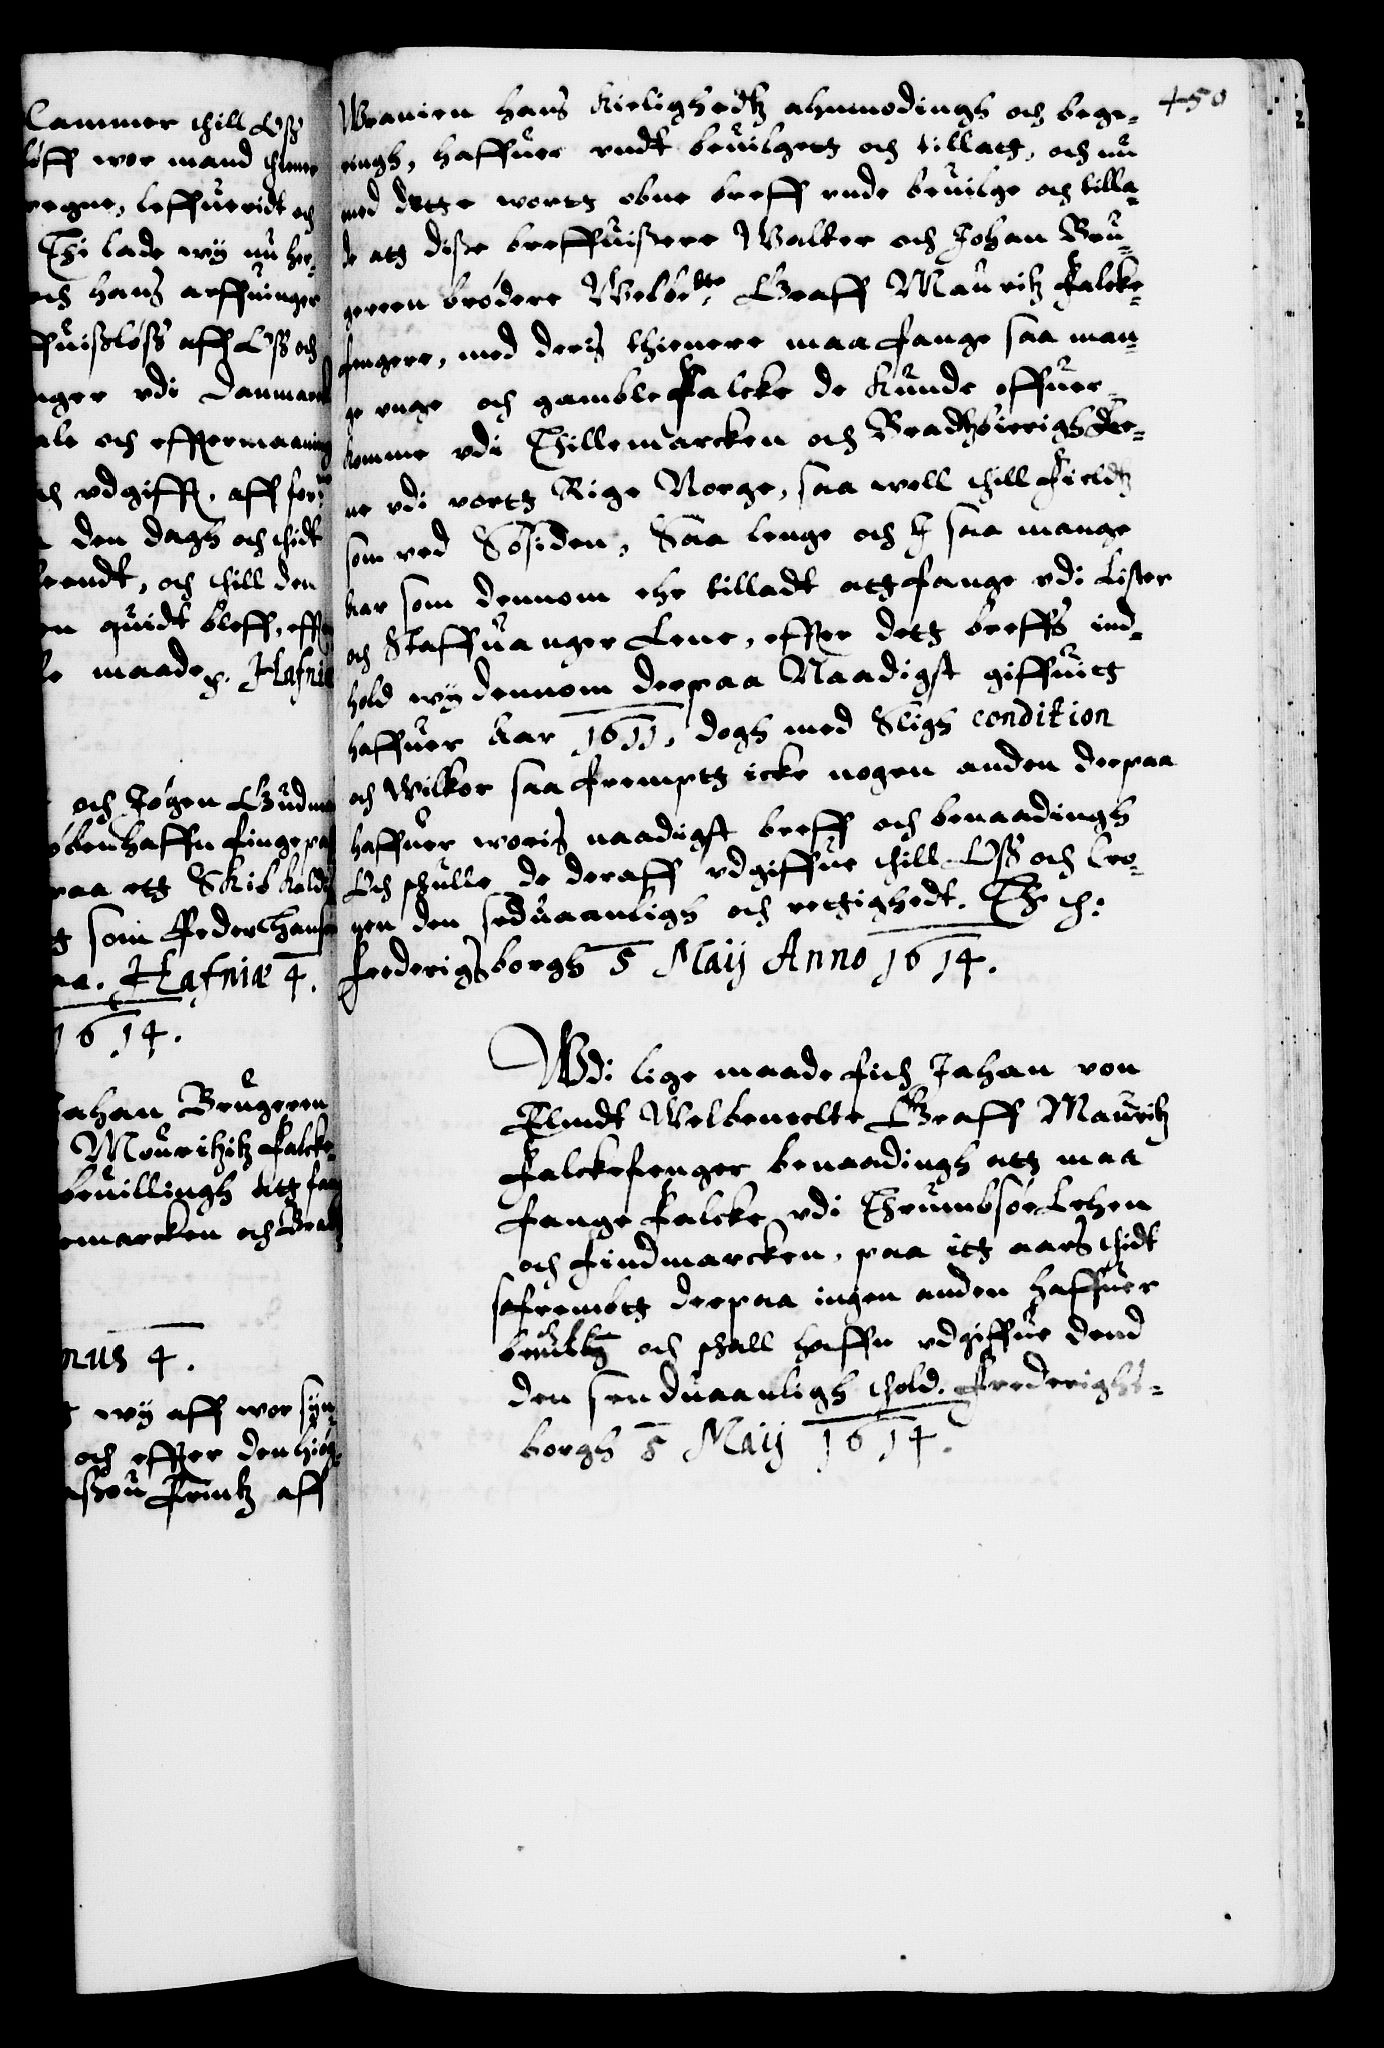 Cammer thill Oss
løff wor mand thiener
regne, leffueridt och
Thi lade wy nu her-
och hans arffuinger
ffuisløss aff Oss och
nger vdi Danmarck
ale och efftermaaning
ch vdgifft, aff for:ne
den dagh och thidt
rendt, och thill den
en quidt bleff, effter
le maade. Hafniæ
och Jøgen Gudm
øbenhaffn finge pas
paa ett Skib kaldt
som Peder Hans
aa. Hafniæ 4.
1614.
Jahan Brugeren
Mouritzitz falcke-
beuillingh att fan
emarcken och Brad
nus 4.
wy aff wor syn
och effter den høy-
assou Printz aff
450
Wranien hans Kielighedtz ahnmodingh och bege-
ringh, haffuer vndt beuilgett och tillatt, och nu
med dette wortt obne breff vnde beuilge och tilla-
de att disse breffuissere Walter och Johan Bru-
geren brødere Welbe:dte Graff Mauritz falcke-
fengere, med deris thienere maa fange saa man-
ge vnge och gamble falcke de kunde offuer-
komme vdi Thillemarcken och Bradtzbierigh Le-
ne vdi vortt Rige Norge, saa well thill fieldtz
som ved Søsiden, Saa lenge och i saa mange
aar som dennom ehr tilladt att fange vdi Lister
och Staffuanger Lene, effter dett breffs ind-
hold wy dennom derpaa Naadigst giffuitt
haffuer Aar 1611, dogh med Sligh condition
och Wilkor saa frempt icke nogen anden derpaa
haffuer woris naadigst breff och benaadingh
Och schulle de deraff vdgiffue thill Oss och Cro-
nen den seduaanligh och rettighedt. Th ch:
frederigsborgh 5 Maij Anno 1614.
Wdi lige maade fich Jahan von
Elindt Welbenelte Graff Mauritz
falckefenger benaadingh att maa
fange falcke vdi Thrumbsøe Lehen
och findmarcken, paa itt aars thidt
safrembtt derpaa ingen anden haffuer
och schall haffn vdgiffue dend
den seeduaanligh thold. frederighs-
borgh 5 Maij 1614.